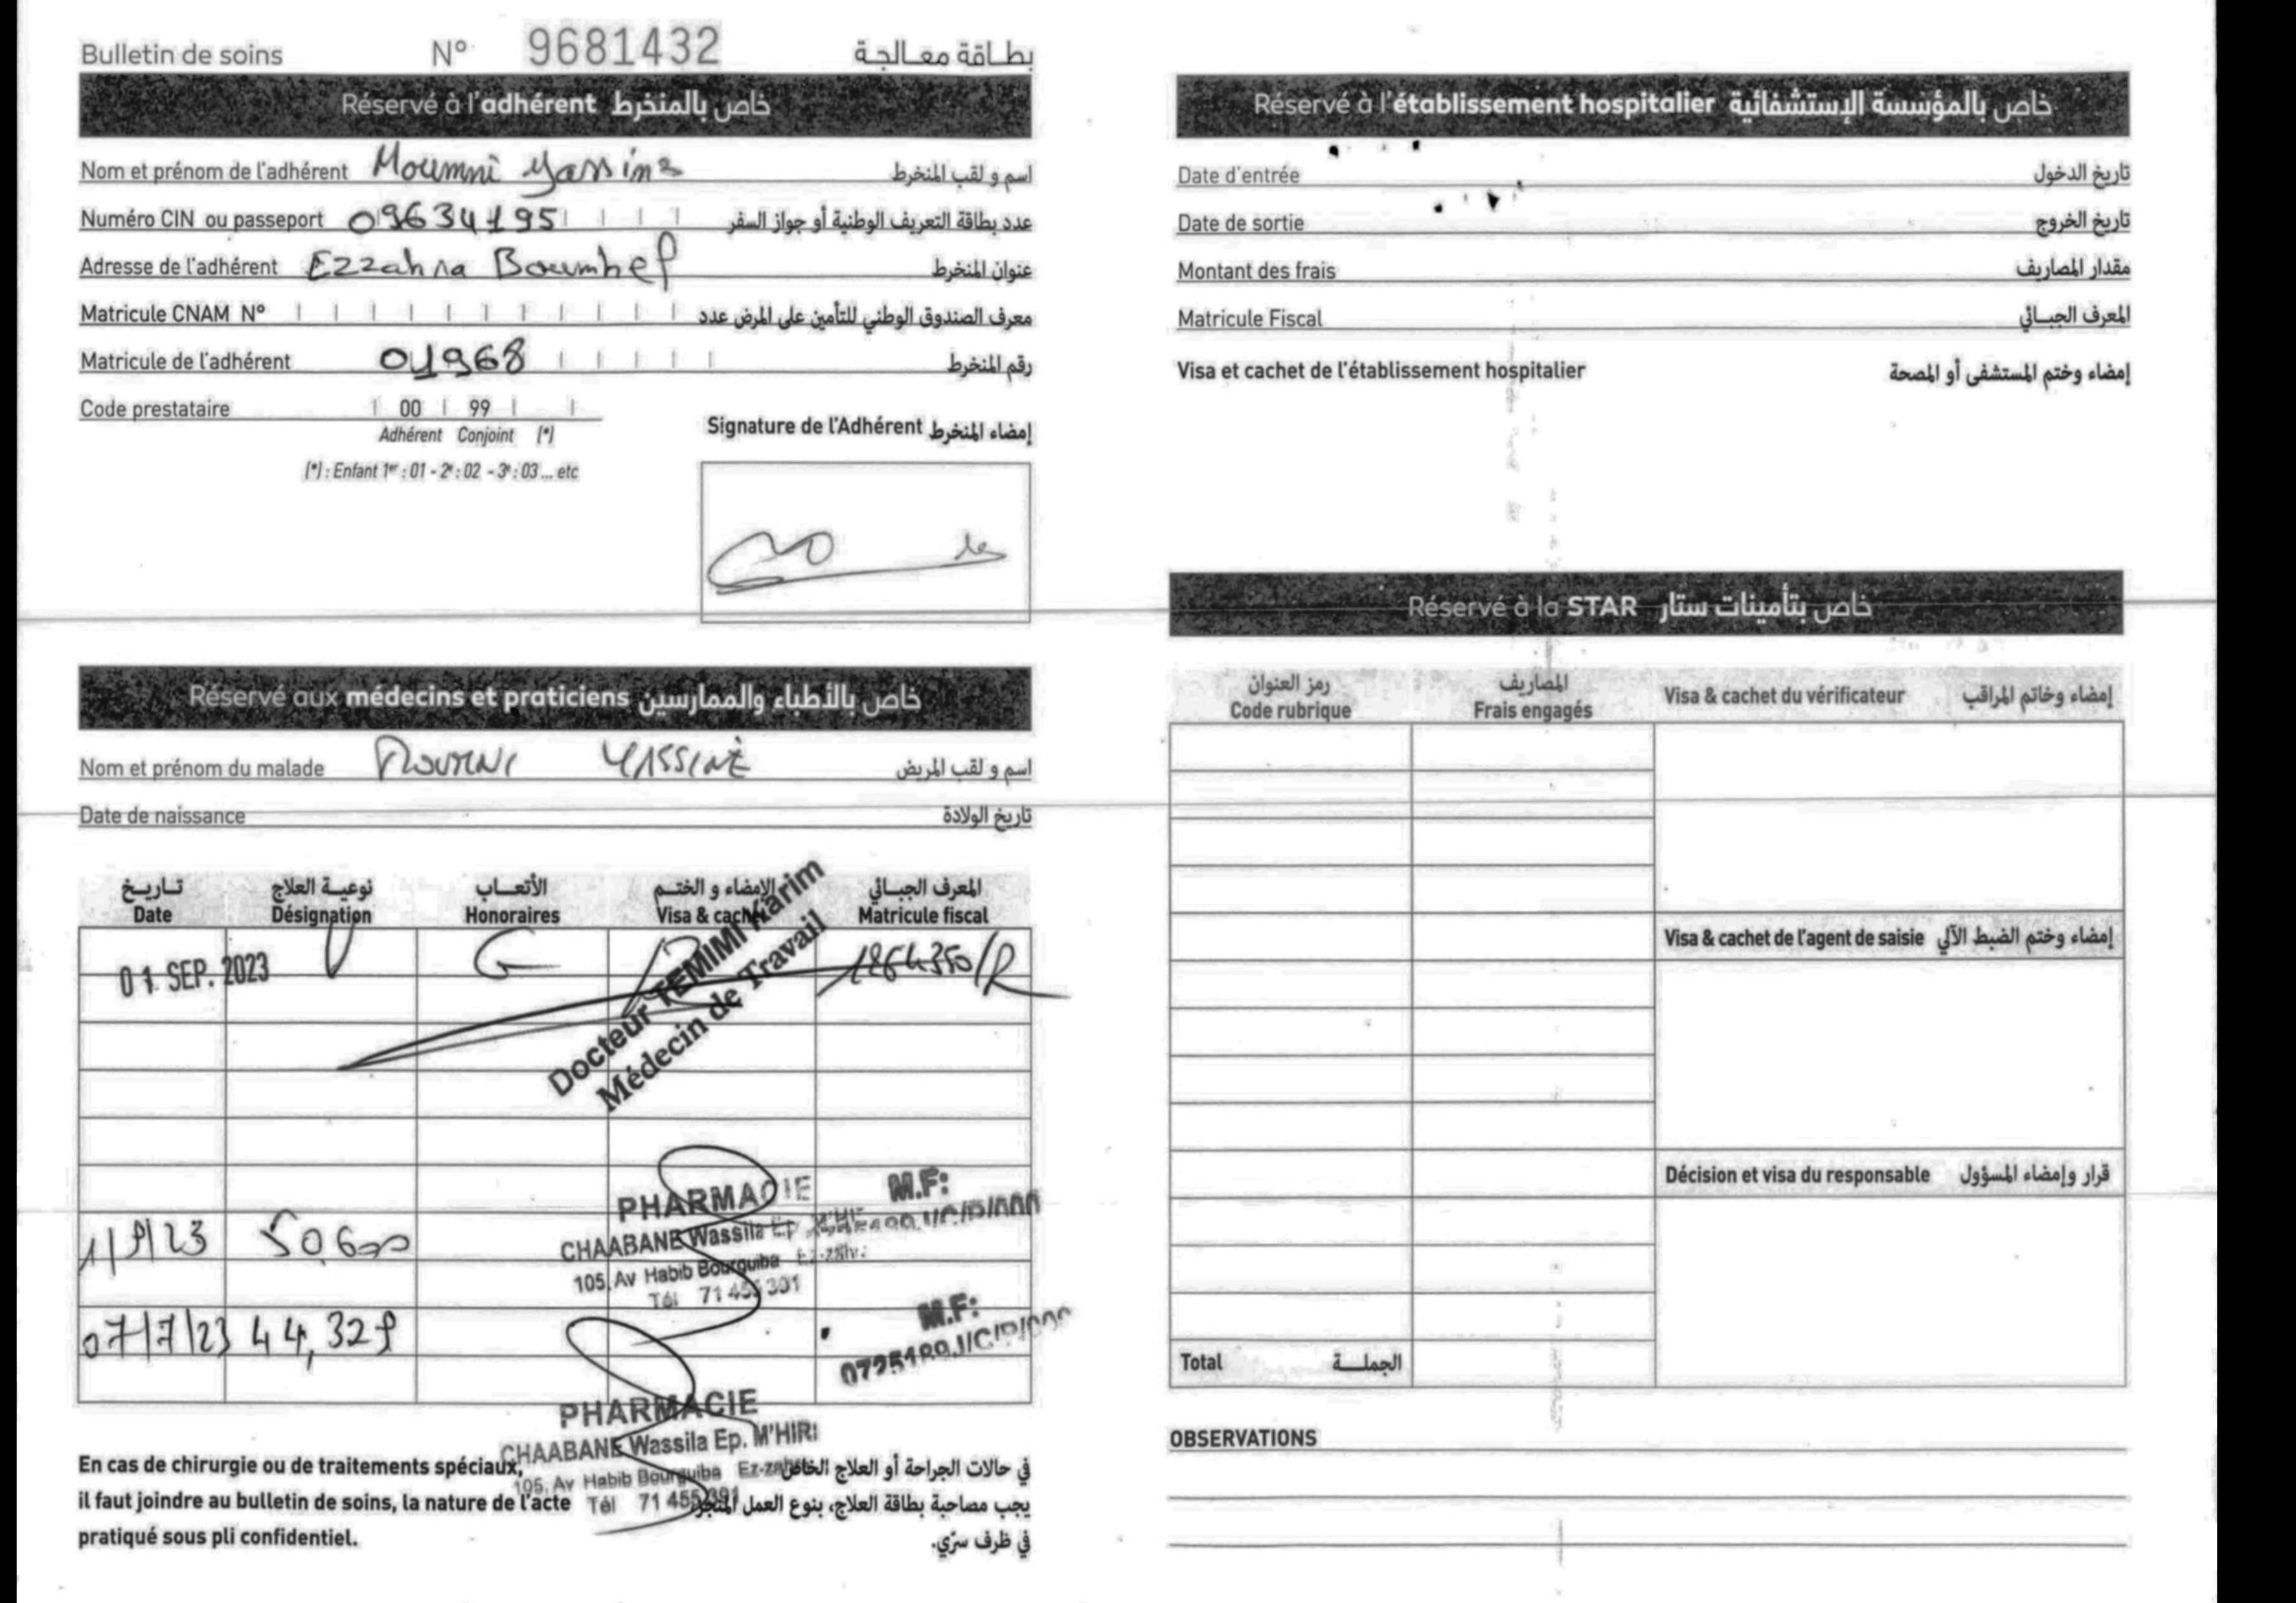 Bulletin de soins N° 9681432 بطاقة معالجة
Réservé à l'adhérent خاص بالمنخرط
Nom et prénom de l'adhérent Moumni Yassine اسم و لقب المنخرط
Numéro CIN ou passeport 09634195 عدد بطاقة التعريف الوطنية أو جواز السفر
Adresse de l'adhérent Ezzahra Boumhel عنوان المنخرط
Matricule CNAM N° معرف الصندوق الوطني للتأمين على المرض عدد
Matricule de l'adhérent 01968 رقم المنخرط
Code prestataire 00 99
Adhérent Conjoint (*)
(*) : Enfant 1er : 01 - 2e : 02 - 3e : 03 ... etc
Signature de l'Adhérent إمضاء المنخرط
Réservé aux médecins et praticiens خاص بالأطباء والممارسين
Nom et prénom du malade MOUMNI YASSINE اسم و لقب المريض
Date de naissance تاريخ الولادة
تاريخ نوعية العلاج الأتعاب الإمضاء و الختم المعرف الجبائي
Date Désignation Honoraires Visa & cachet Matricule fiscal
01 SEP. 2023 1864350/R
Docteur TEMIMI Karim
Médecin de Travail
1/9/23 50,600
PHARMACIE M.F:
CHAABANE Wassila Ep
105, Av Habib Bourguiba
Tél 71 455 391
07/7/23 44,329
M.F:
PHARMACIE
CHAABANE Wassila Ep. M'HIRI
105, Av Habib Bourguiba Ez-zahra
Tél 71 455 391
En cas de chirurgie ou de traitements spéciaux,
il faut joindre au bulletin de soins, la nature de l'acte
pratiqué sous pli confidentiel.
في حالات الجراحة أو العلاج الخاص
يجب مصاحبة بطاقة العلاج، بنوع العمل المنجز
في ظرف سرّي.
Réservé à l'établissement hospitalier خاص بالمؤسسة الإستشفائية
Date d'entrée تاريخ الدخول
Date de sortie تاريخ الخروج
Montant des frais مقدار المصاريف
Matricule Fiscal المعرف الجبائي
Visa et cachet de l'établissement hospitalier إمضاء وختم المستشفى أو المصحة
Réservé à la STAR خاص بتأمينات ستار
رمز العنوان المصاريف
Code rubrique Frais engagés
Visa & cachet du vérificateur إمضاء وخاتم المراقب
Visa & cachet de l'agent de saisie إمضاء وختم الضبط الآلي
Décision et visa du responsable قرار وإمضاء المسؤول
Total الجملة
OBSERVATIONS